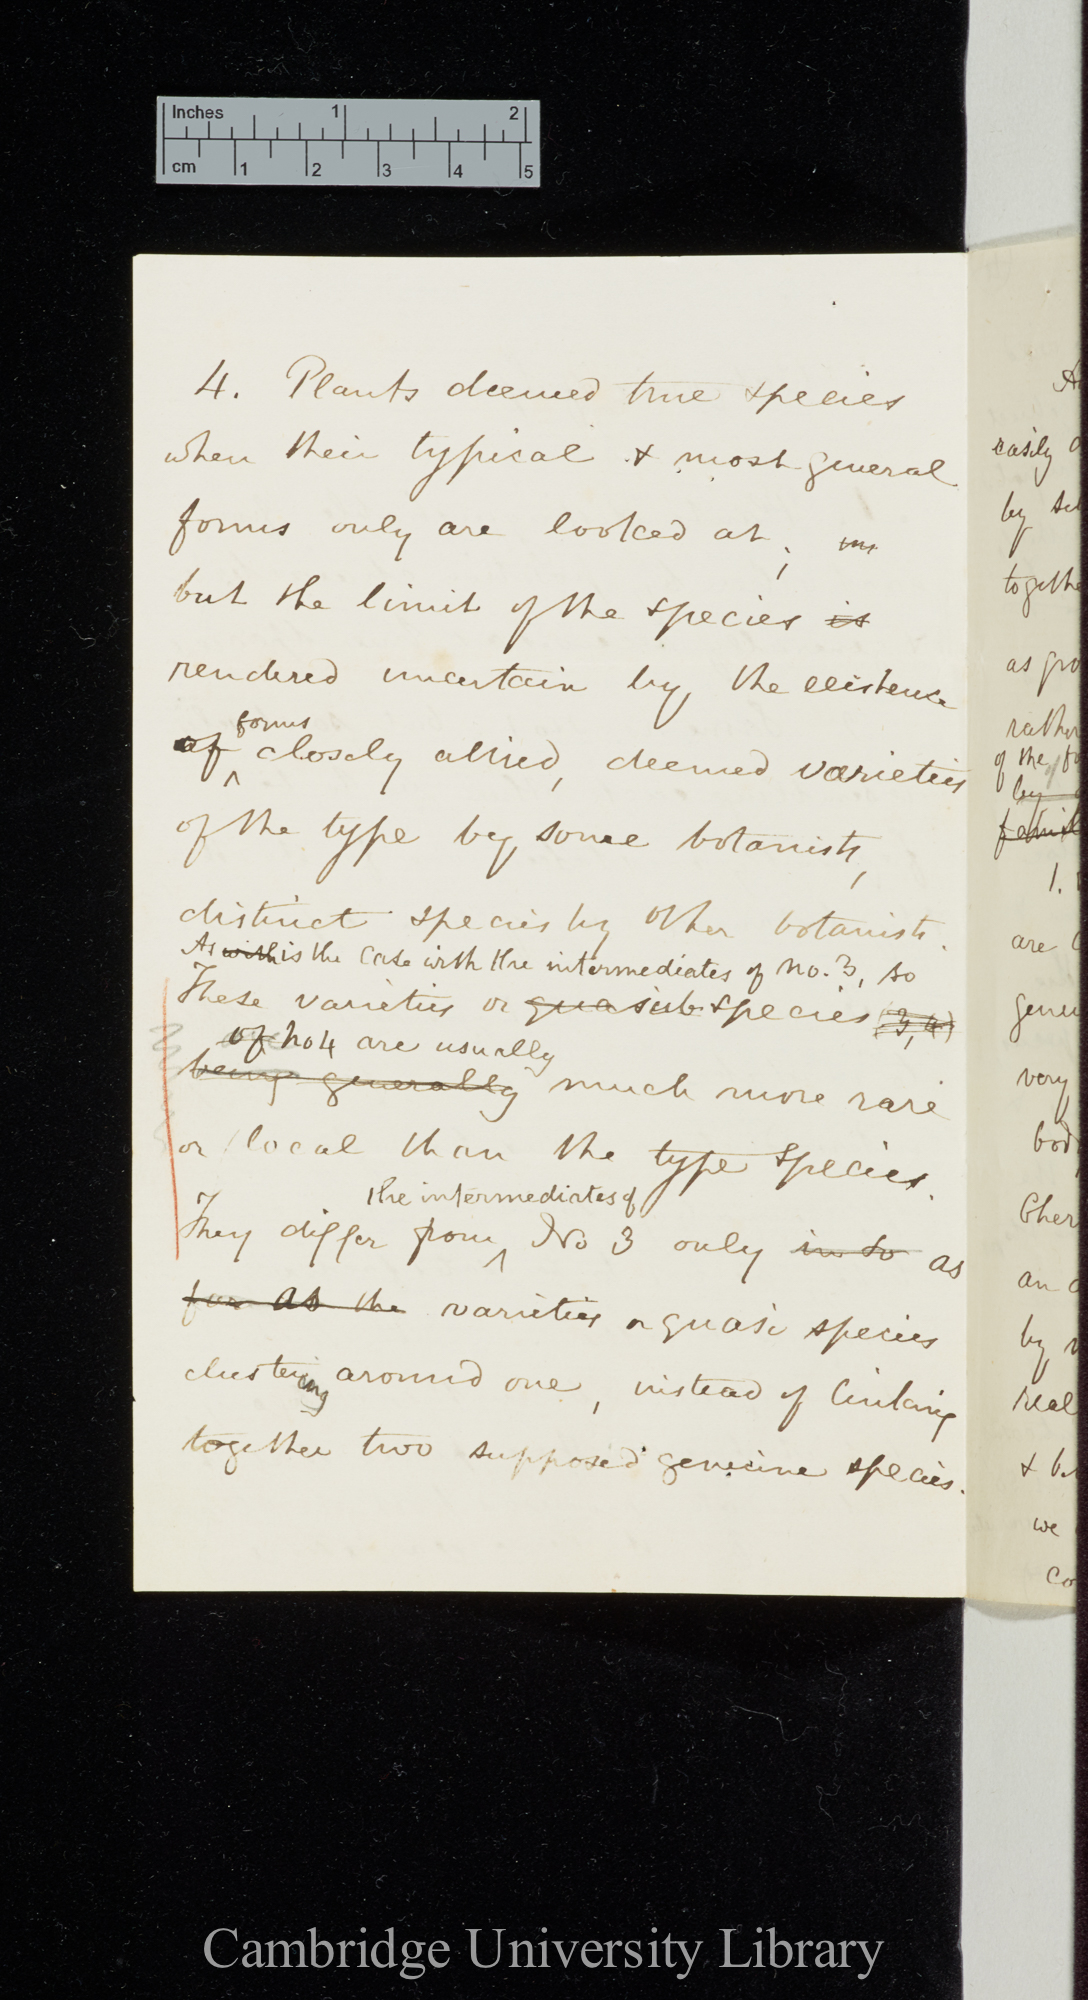 Inches 1 2
cm 1 2 3 4 5
4. Plants deemed true species
when their typical & most general
forms only are looked at;
but the limit of the species is
rendered uncertain by the existence
forms
of closely allied, deemed varieties
of the type by some botanists,
distinct species by other botanists.
As with is the case with the intermediates of no. 3, so
These varieties or quasi sub species (3, 4)
of no 4 are usually
being generally much more rare
or local than the type species.
the intermediates of
They differ from No 3 only in so as
far as the varieties or quasi species
clustering around one, instead of linking
together two supposed genuine species.
easily
by
togethe
as gro
rather
of the fo
by
1.
are
gener
very
bod
Cher
an
by
real
& be
we
co
Cambridge University Library